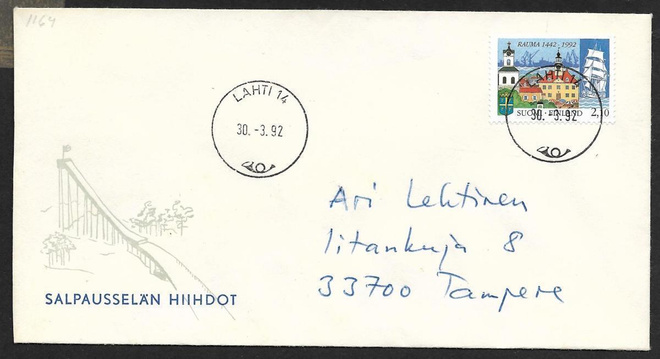 1164
RAUMA 1442-1992
LAHTI 14
30.-3.92
LAHTI 14
30.-3.92
SUOMI FINLAND 2,10
Ari Lehtinen
Iitankuja 8
33700 Tampere
SALPAUSSELÄN HIIHDOT